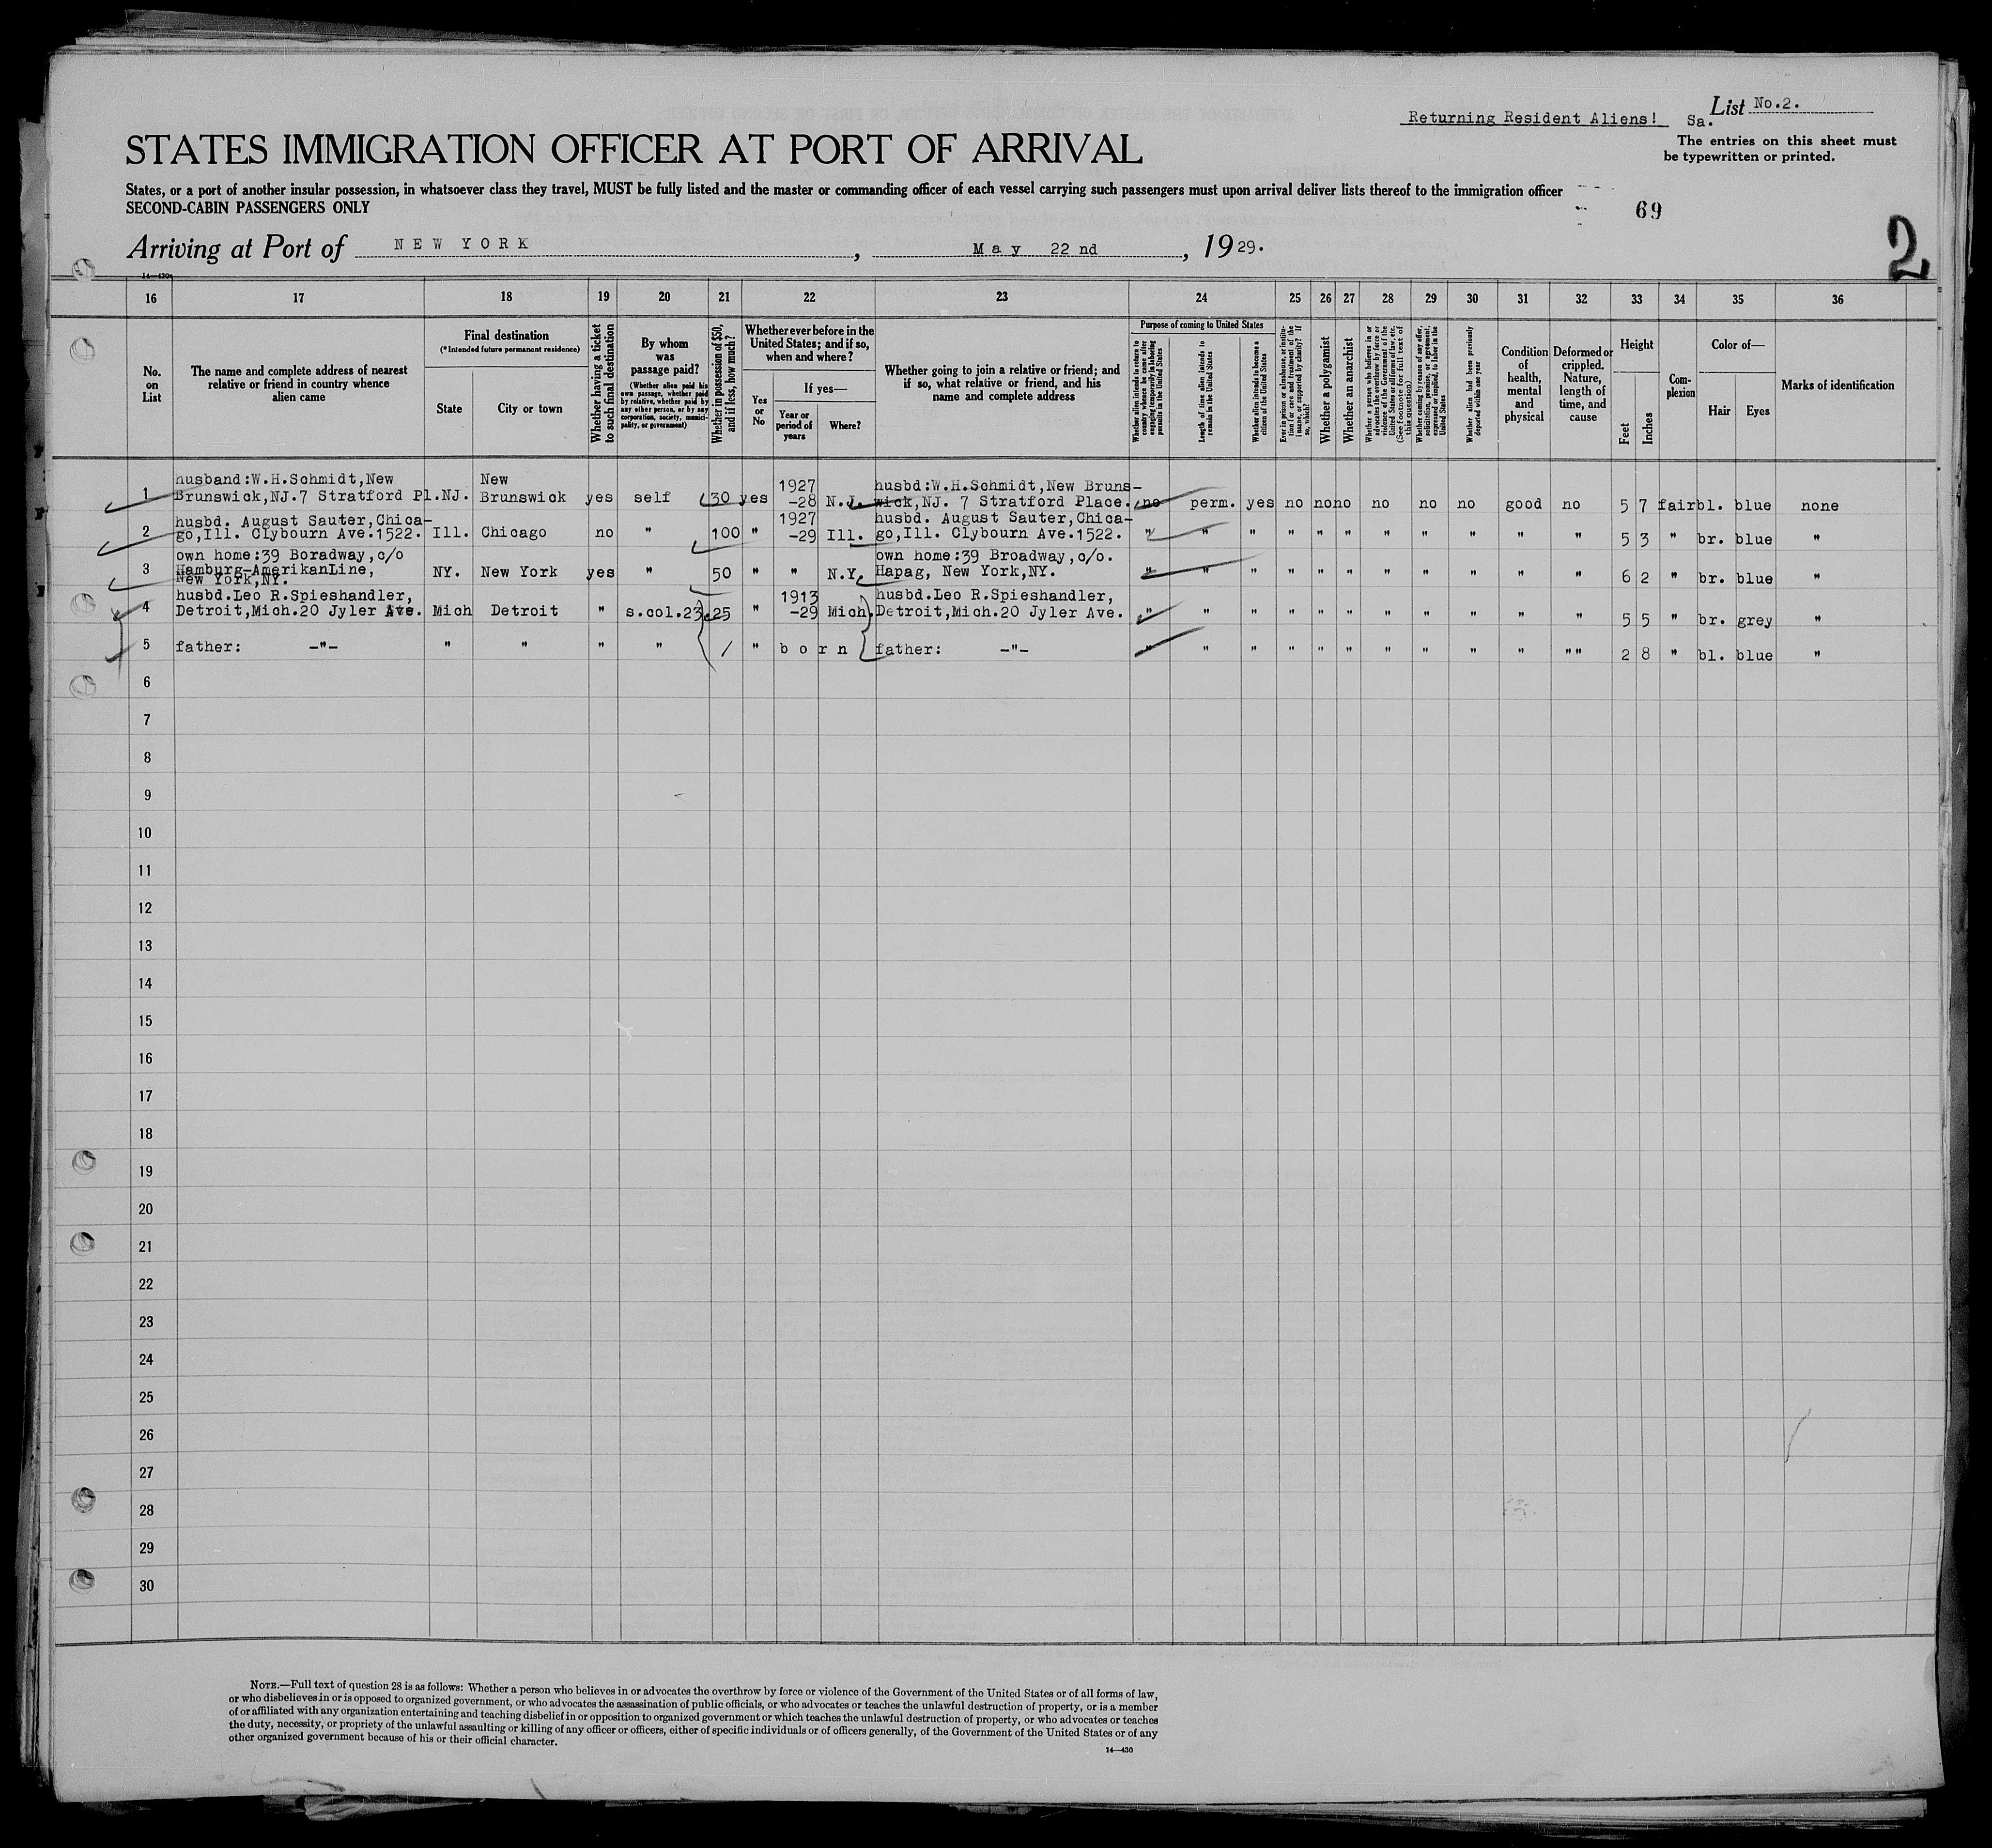 Returning Resident Aliens!
Sa.
List No.2.
The entries on this sheet must
be typewritten or printed.
STATES IMMIGRATION OFFICER AT PORT OF ARRIVAL
States, or a port of another insular possession, in whatsoever class they travel, MUST be fully listed and the master or commanding officer of each vessel carrying such passengers must upon arrival deliver lists thereof to the immigration officer
SECOND-CABIN PASSENGERS ONLY
69
2
Arriving at Port of NEW YORK , May 22nd , 1929.
14—430
16 17 18 19 20 21 22 23 24 25 26 27 28 29 30 31 32 33 34 35 36
No. on List
The name and complete address of nearest relative or friend in country whence alien came
Final destination
(*Intended future permanent residence)
State
City or town
Whether having a ticket to such final destination
By whom was passage paid?
(Whether alien paid his own passage, whether paid by relative, whether paid by any other person, or by any corporation, society, municipality, or government)
Whether in possession of $50, and if less, how much?
Whether ever before in the United States; and if so, when and where?
Yes or No
If yes—
Year or period of years
Where?
Whether going to join a relative or friend; and if so, what relative or friend, and his name and complete address
Purpose of coming to United States
Whether alien intends to return to country whence he came after engaging temporarily in laboring pursuits in the United States
Length of time alien intends to remain in the United States
Whether alien intends to become a citizen of the United States
Ever in prison or almshouse, or institution for care and treatment of the insane, or supported by charity? If so, which?
Whether a polygamist
Whether an anarchist
Whether a person who believes in or advocates the overthrow by force or violence of the Government of the United States or all forms of law, etc. (See footnote for full text of this question)
Whether coming by reason of any offer, solicitation, promise, or agreement, expressed or implied, to labor in the United States
Whether alien had been previously deported within one year
Condition of health, mental and physical
Deformed or crippled. Nature, length of time, and cause
Height
Feet
Inches
Complexion
Color of—
Hair
Eyes
Marks of identification
1 husband:W.H.Schmidt,New Brunswick,NJ.7 Stratford Pl. NJ. New Brunswick yes self 30 yes 1927 -28 N.J. husbd:W.H.Schmidt,New Brunswick,NJ. 7 Stratford Place. no perm. yes no no no no no no good no 5 7 fair bl. blue none
2 husbd. August Sauter,Chicago,Ill. Clybourn Ave.1522. Ill. Chicago no " 100 " 1927 -29 Ill. husbd. August Sauter,Chicago,Ill. Clybourn Ave.1522. " " " " " " " " " " " 5 3 " br. blue "
3 own home:39 Boradway,c/o Hamburg-AmerikanLine, New York,NY. NY. New York yes " 50 " " N.Y. own home:39 Broadway,c/o. Hapag, New York,NY. " " " " " " " " " " " 6 2 " br. blue "
4 husbd.Leo R.Spieshandler, Detroit,Mich.20 Jyler Ave. Mich Detroit " s.col.23 25 " 1913 -29 Mich. husbd.Leo R.Spieshandler, Detroit,Mich.20 Jyler Ave. " " " " " " " " " " " 5 5 " br. grey "
5 father: -"- " " " " / " born father: -"- " " " " " " " " " " "" 2 8 " bl. blue "
6
7
8
9
10
11
12
13
14
15
16
17
18
19
20
21
22
23
24
25
26
27
28
29
30
NOTE.—Full text of question 28 is as follows: Whether a person who believes in or advocates the overthrow by force or violence of the Government of the United States or of all forms of law,
or who disbelieves in or is opposed to organized government, or who advocates the assassination of public officials, or who advocates or teaches the unlawful destruction of property, or is a member
of or affiliated with any organization entertaining and teaching disbelief in or opposition to organized government or which teaches the unlawful destruction of property, or who advocates or teaches
the duty, necessity, or propriety of the unlawful assaulting or killing of any officer or officers, either of specific individuals or of officers generally, of the Government of the United States or of any
other organized government because of his or their official character.
14—430